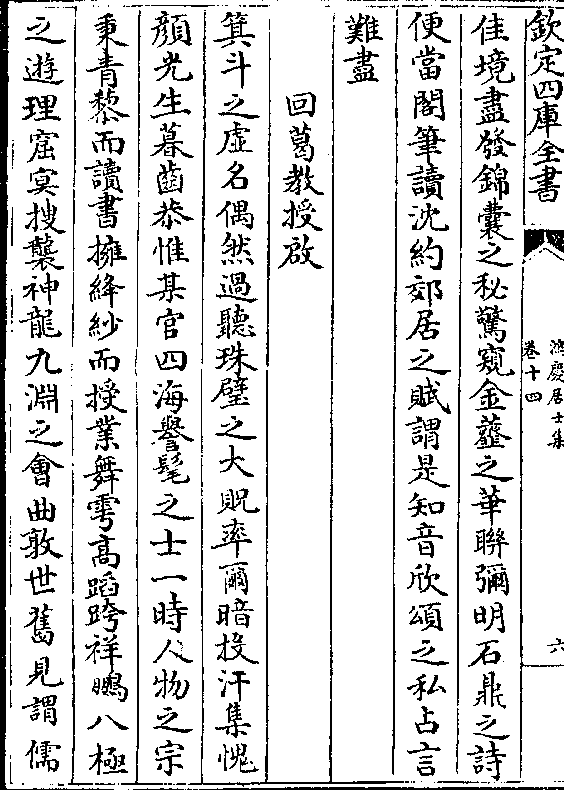 欽定四庫全書
鴻慶居士集
卷十四
六
佳境盡發錦囊之秘驚窺金薤之華聯彌明石鼎之詩
便當閣筆讀沈約郊居之賦謂是知音欣頌之私占言
難盡
回葛教授啟
箕斗之虛名偶然過聽珠璧之大貺率爾暗投汗集愧
顏光生暮齒恭惟某官四海譽髦之士一時人物之宗
秉青藜而讀書擁絳紗而授業舞雩高蹈跨祥鵬八極
之遊理窟冥搜襲神龍九淵之會曲敦世舊見謂儒